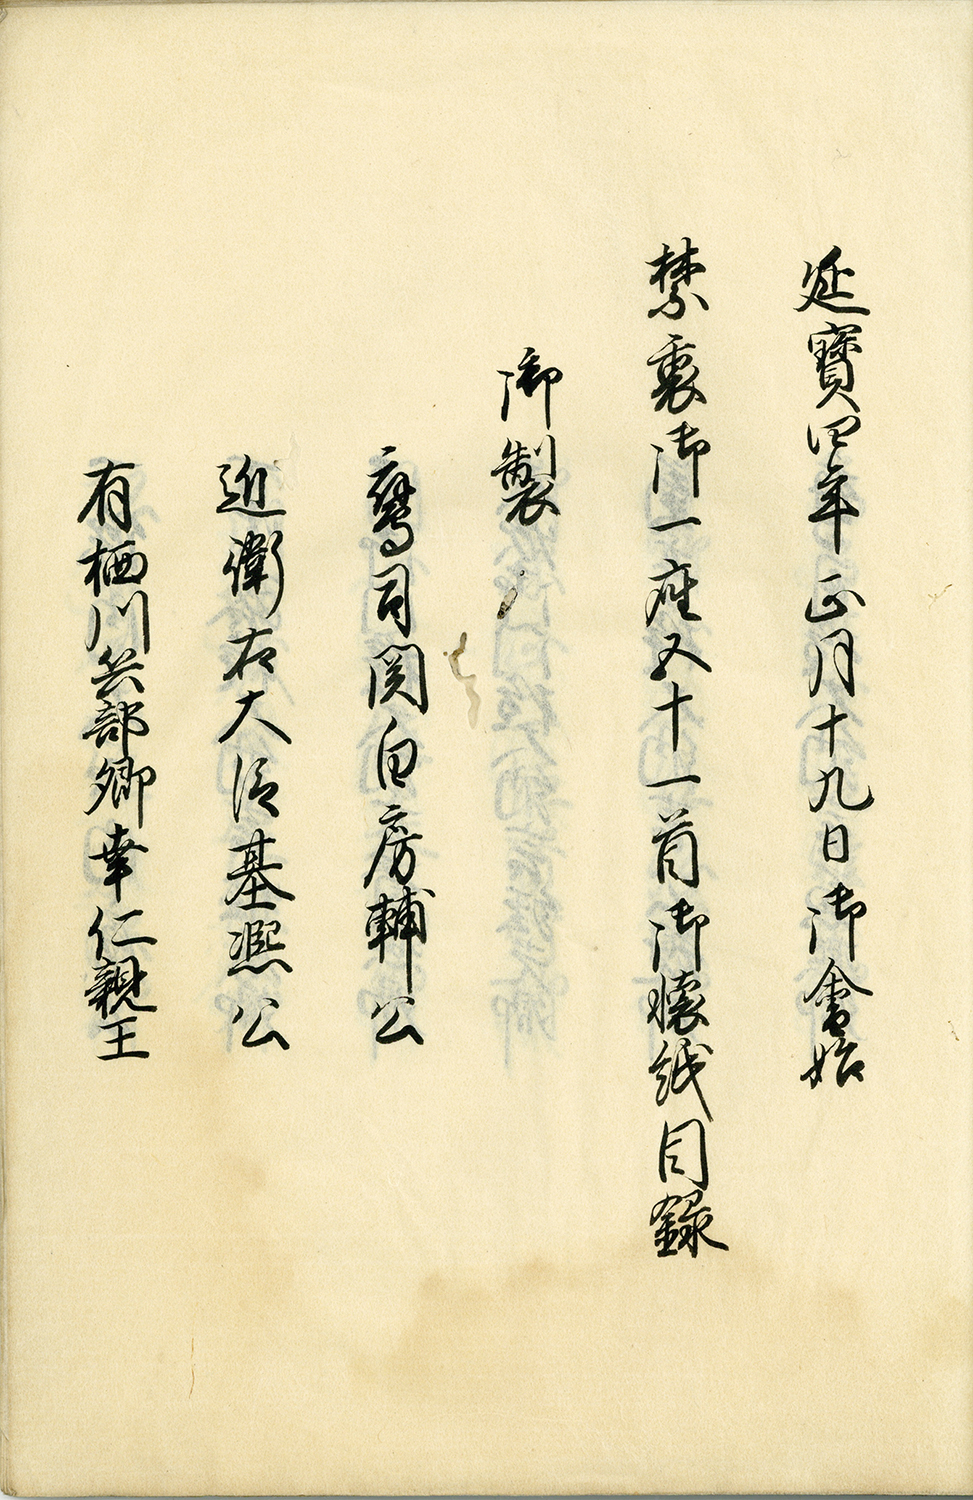 延寶四年正月十九日御會始
禁裏御一座五十一首御懐紙目録
御製
鷹司関白房輔公
近衛右大臣基熙公
有栖川兵部卿幸仁親王